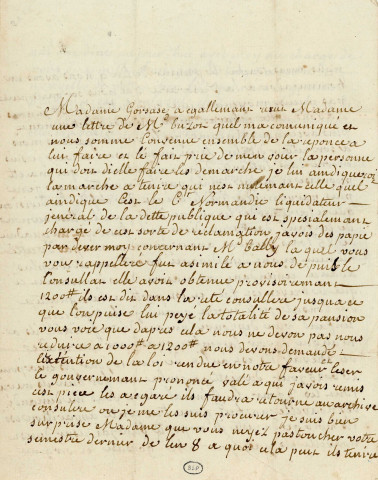 Madame Gorsase a egallemant reçut Madame
une lettre de Mr buzot quel ma comuniqué et
nous somme Convenue ensemble de la reponce a
lui faire et le fait prie de men voier la personne
qui doit dielle faire les demarche je lui aindiqueroi
la marche a tenire qui nest nullemant telle quel
aindique C'est le Cen Normandie liquidateur
jeneral de la dette publique qui est spesialemant
chargé de cest sorte de réclamation javois des papié
par dever moy concernant Me Bally la quel vous
vou rappellere fut asimilé a nous depuis le
Consullat elle avoit obtenue provisoiremant
1200tt ils est dit dans larete consullere jusqua ce
que lon puise lui peyé la totalité de sa pansion
vous voié que daprés cela nous ne devon pas nous
réduire a 1000tt a 1200tt nous devons demandé
lextention de la loi rendue en notre faveur lesser
le gouvernemant prononcé vale a qui javois remis
cest piece les a egaré ils faudra retourné au archive
consulere ou je me les suis procurer je suis bien
surprise Madame que vous neyez pas toucher votre
semestre dernier de lan 8 a quois cela peut ils tenire